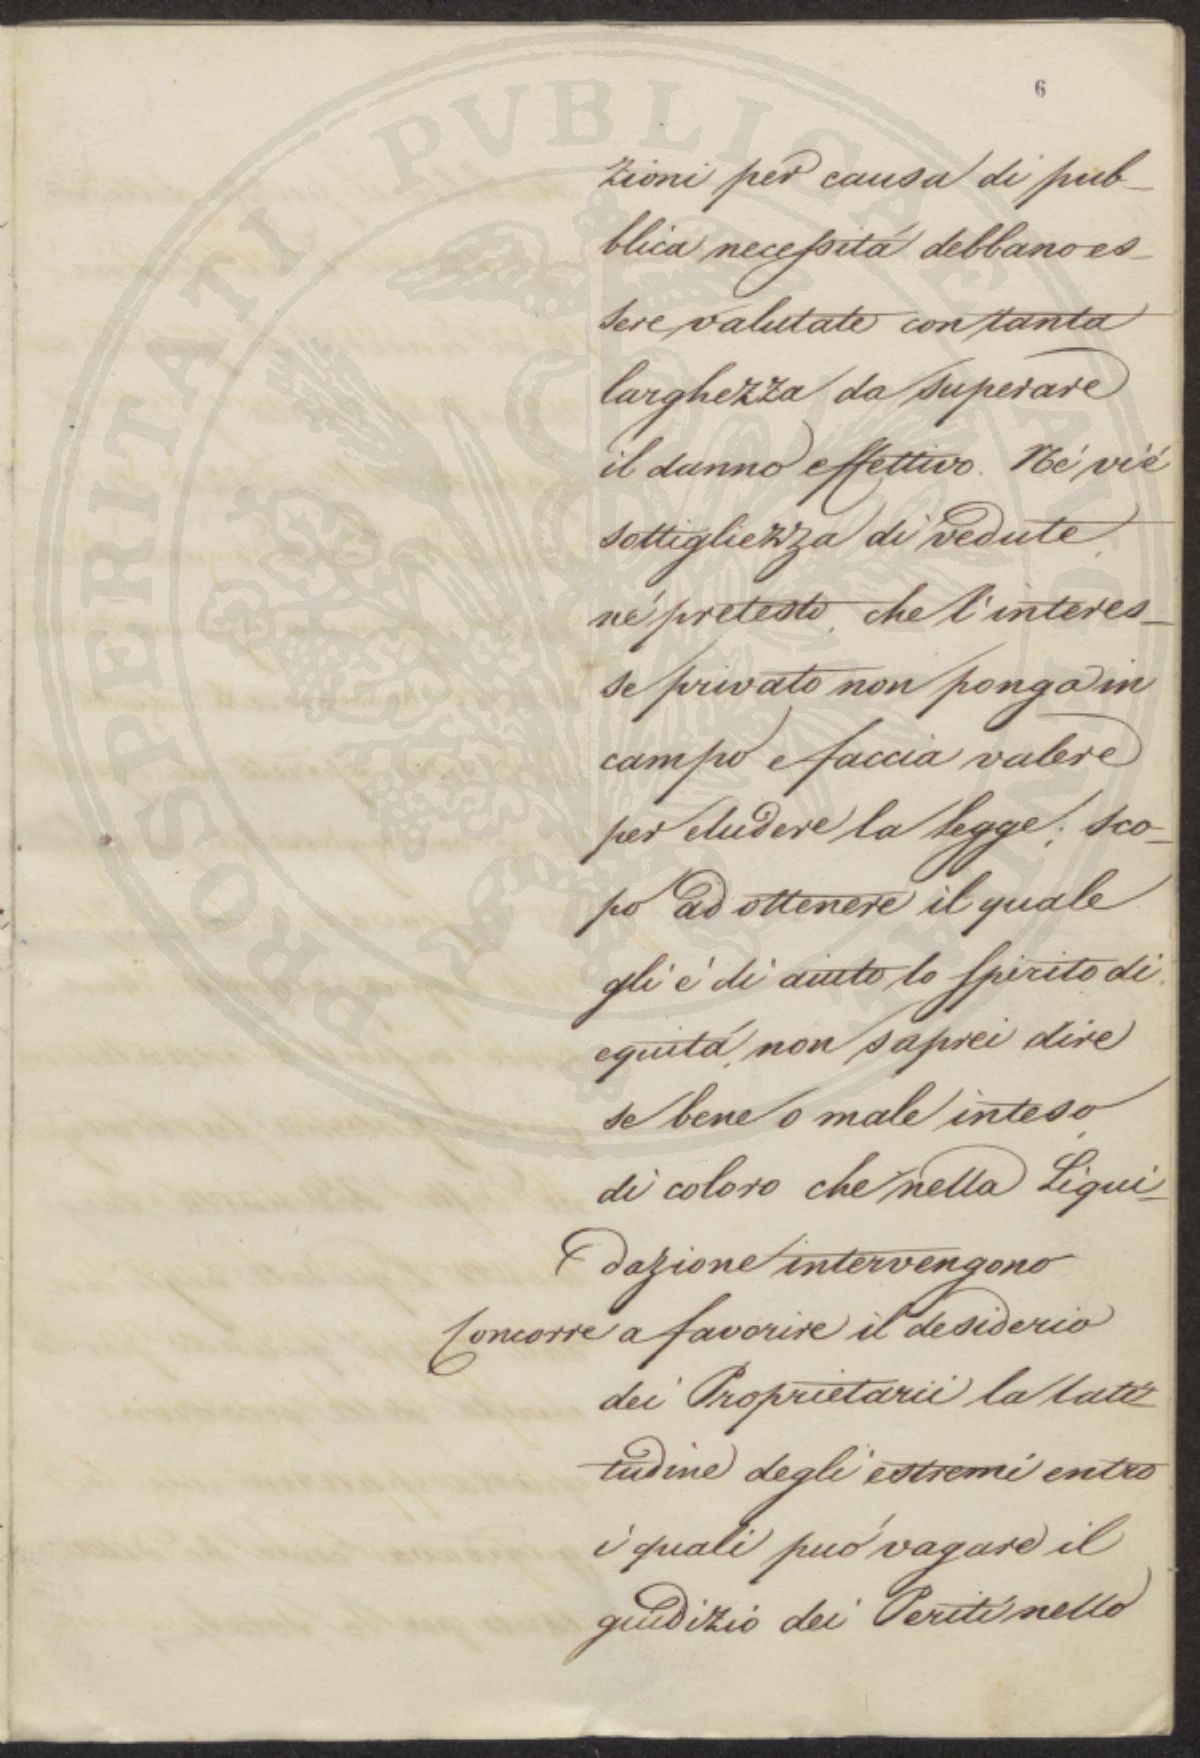 6
zioni per causa di pub-
blica necessitá debbano es-
sere valutate con tanta
larghezza da superare
il danno effettivo. Né vi é
sottigliezza di vedute,
né pretesto, che l'interes-
se privato non ponga in
campo e faccia valere
per eludere la legge; sco-
po ad ottenere il quale
gli é di aiuto lo spirito di
equitá, non saprei dire
se bene o male inteso,
di coloro che nella Liqui-
dazione intervengono
Concorre a favorire il desiderio
dei Proprietarii la lati-
tudine degli estremi entro
i quali puó vagare il
giudizio dei Periti nello
PROSPERITATI PVBLICAE AVGENDAE